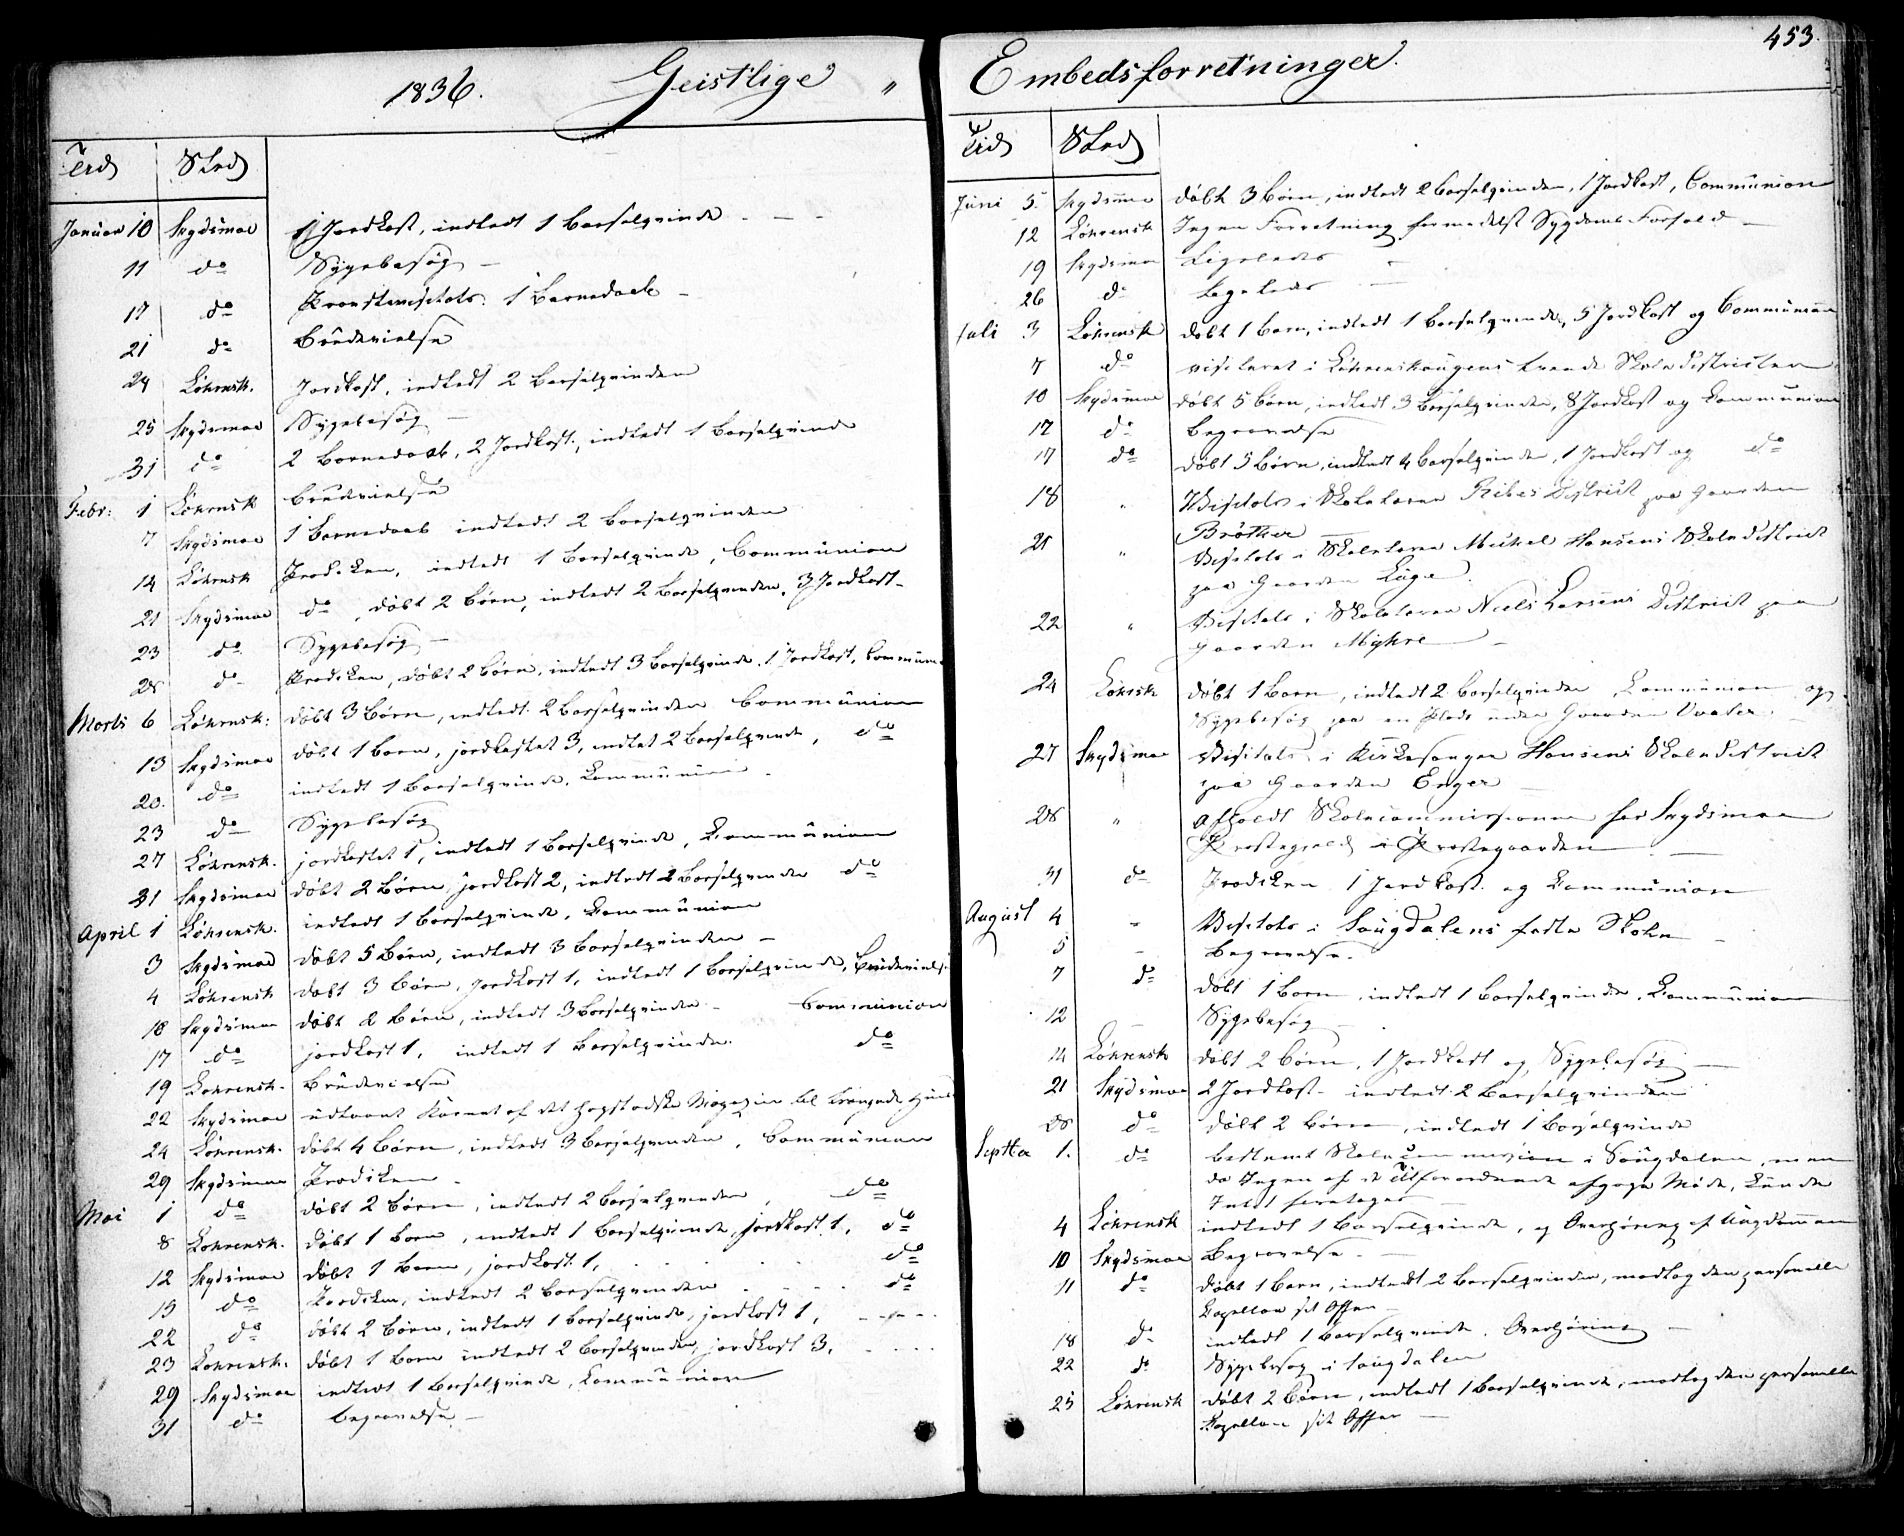 453.
1836. Geistlige " Embedsforretninger.
Tid Sted
Januar 10 Skydsmoe 1 Jordkast, indledt 1 Barselqvinde - - -
11 do Sygebesøg -
17 do Provstevisitats. 1 Barnedaab -
21 do Brudevielse
24 Löhrensk. Jordkast, indledt 2 Barselqvinder
25 Skydsmoe Sygebesøg -
31 do 2 Barnedaab, 2 Jordkast, indledt 1 Barselqvinde
Febr: 1 Löhrensk Brudevielse
7 Skydsmoe 1 Barnedaab indledt 2 Barselqvinder
14 Löhrensk Prediken, indledt 1 Barselqvinde, Communion
21 Skydsmoe do, döbt 2 Börn, indledt 2 Barselqvinder, 3 Jordkast -
23 do Sygebesøg -
28 do Prediken, döbt 2 Börn, indledt 3 Barselqvinde, 1 Jordkast, Commun
Marts 6 Löhrensk: döbt 3 Börn, indledt 2 Barselqvinder Communion
13 Skydsmoe döbt 1 Barn, jordkastet 3, indlet 2 Barselqvinde, do
20. do indledt 1 Barselqvinde, Communion -
23 do Sygebesøg
27 Löhrensk. jordkastet 1, indledt 1 Barselqvinde, Communion
31 Skydsmoe döbt 2 Börn, jordkast 2, indledt 2 Barselqvinder do
April 1 Löhrensk. indledt 1 Barselqvinde, Communion
3 Skydsmoe döbt 5 Börn, indledt 3 Barselqvinder -
4 Löhrensk döbt 3 Börn, jordkast 1, indledt 1 Barselqvinde, Brudevielse
10 Skydsmoe döbt 2 Börn, indledt 3 Barselqvinder - Communion
17 do jordkast 1, indledt 1 Barselqvinde. do
19 Löhrensk. Brudevielse
22 Skydsmoe udlaant Kornet af det Hogstadske Magazin til trængende
24 Löhrensk. döbt 4 Börn, indledt 3 Barselqvinder, Communion
29 Skydsmoe Prediken -
Mai 1 do döbt 2 Börn, indledt 2 Barselqvinder, do
8 Löhrensk. döbt 1 Barn, indledt 1 Barselqvinde, jordkast 1, do
12 Skydsmoe döbt 1 Barn, jordkast 1, do
15 do Prediken, indledt 2 Barselqvinder do
22 do döbt 2 Börn, indledt 1 Barselqvinde, jordkast 1,
23 Löhrensk. döbt 1 Barn indledt 2 Barselqvinder, jordkast 3,
29 Skydsmoe indledt 1 Barselqvinde, Communion
31 do begravelse -
Tid Sted
Juni 5. Skydsmoe döbt 3 Börn, indledt 2 Barselqvinder, 1 Jordkast, Communion
12 Löhrensk Ingen Forretning formedelst Sygdoms Forfald -
19 Skydsmoe Ligeledes
26 do Ligeledes
Juli 3 Löhrensk döbt 1 Barn, indledt 1 Barselqvinde, 5 Jordkast og Communion
7 do visiteret i Löhrenskougens trende Skoledistricter
10 Skydsmoe döbt 5 Börn, indledt 3 Barselqvinder, 8 Jordkast og Communion
12 do Begravelse
17 do döbt 5 Börn, indledt 4 Barselqvinder, 1 Jordkast og do
18 " Visitats i Skolelærer Ribes District paa Gaarden
Bröther
21 " Visitats i Skolelærer Mickel Hansens Skoledistrict
paa Gaarden
22 " Visitats i Skolelærer Niels Larsens District paa
Gaarden Myhre -
24 Löhrsk döbt 1 Barn, indledt 2 Barselqvinder, Communion og
Sygebesøg paa en Plads under Gaarden
27 Skydsmoe Visitats i Kirkesanger Hansens Skoledistrict
paa Gaarden Enger
28 " afholdt Skolecommissionen for Skydsmoe
Præstegield i Præstegaarden -
31 do Prediken 1 Jordkast og Communion
August 4 - Visitats i Sougdalens faste Skole -
5 - Begravelse.
7 do döbt 1 Barn, indledt 1 Barselqvinde, Communion
12 - Sygebesøg -
14 Löhrensk döbt 2 Börn, 1 Jordkast og Sygebesøg -
21 Skydsmoe 2 Jordkast - indledt 2 Barselqvinder
28 do döbt 2 Börn, indledt 1 Barselqvinde
Septbr 1. do bestemt Skolecommission i Sougdalen, men
da Ingen af de Tilforordnede afgave Møde, kunde
Intet foretages -
4 Löhrensk indledt 1 Barselqvinde, og Overhøring af Ungdommen
10 Skydsmoe Begravelse -
11 do Döbt 1 Barn, indledt 2 Barselqvinder, modtog den personelle
Capellan sit Offer -
18 do indledt 1 Barselqvinde. Overhøring -
22 do Sygebesøg i Sougdalen
25 Löhrensk döbt 2 Börn, indledt 1 Barselqvinde, modtog den personelle
Capellan sit Offer -